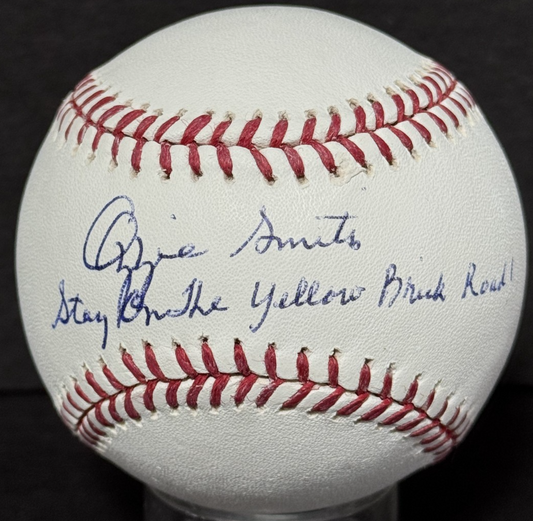 Ozzie Smith
Stay On The Yellow Brick Road!